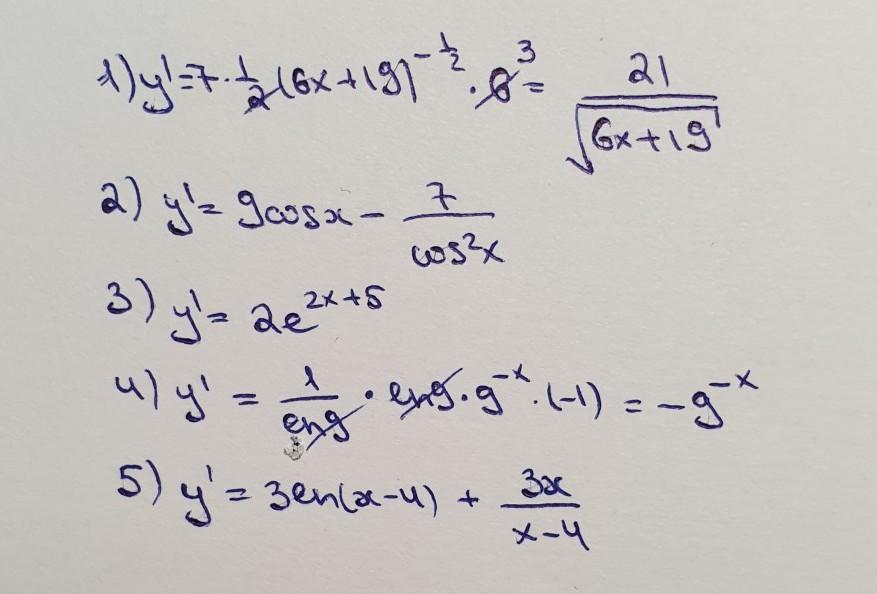 1) y' = 7 · 1/2 (6x+19)^(-1/2) · 6 ^3 = 21/√(6x+19)
2) y' = 9cosx - 7/cos²x
3) y' = 2e^(2x+5)
4) y' = 1/ln9 · ln9 · 9^(-x) · (-1) = -9^(-x)
5) y' = 3ln(x-4) + 3x/(x-4)